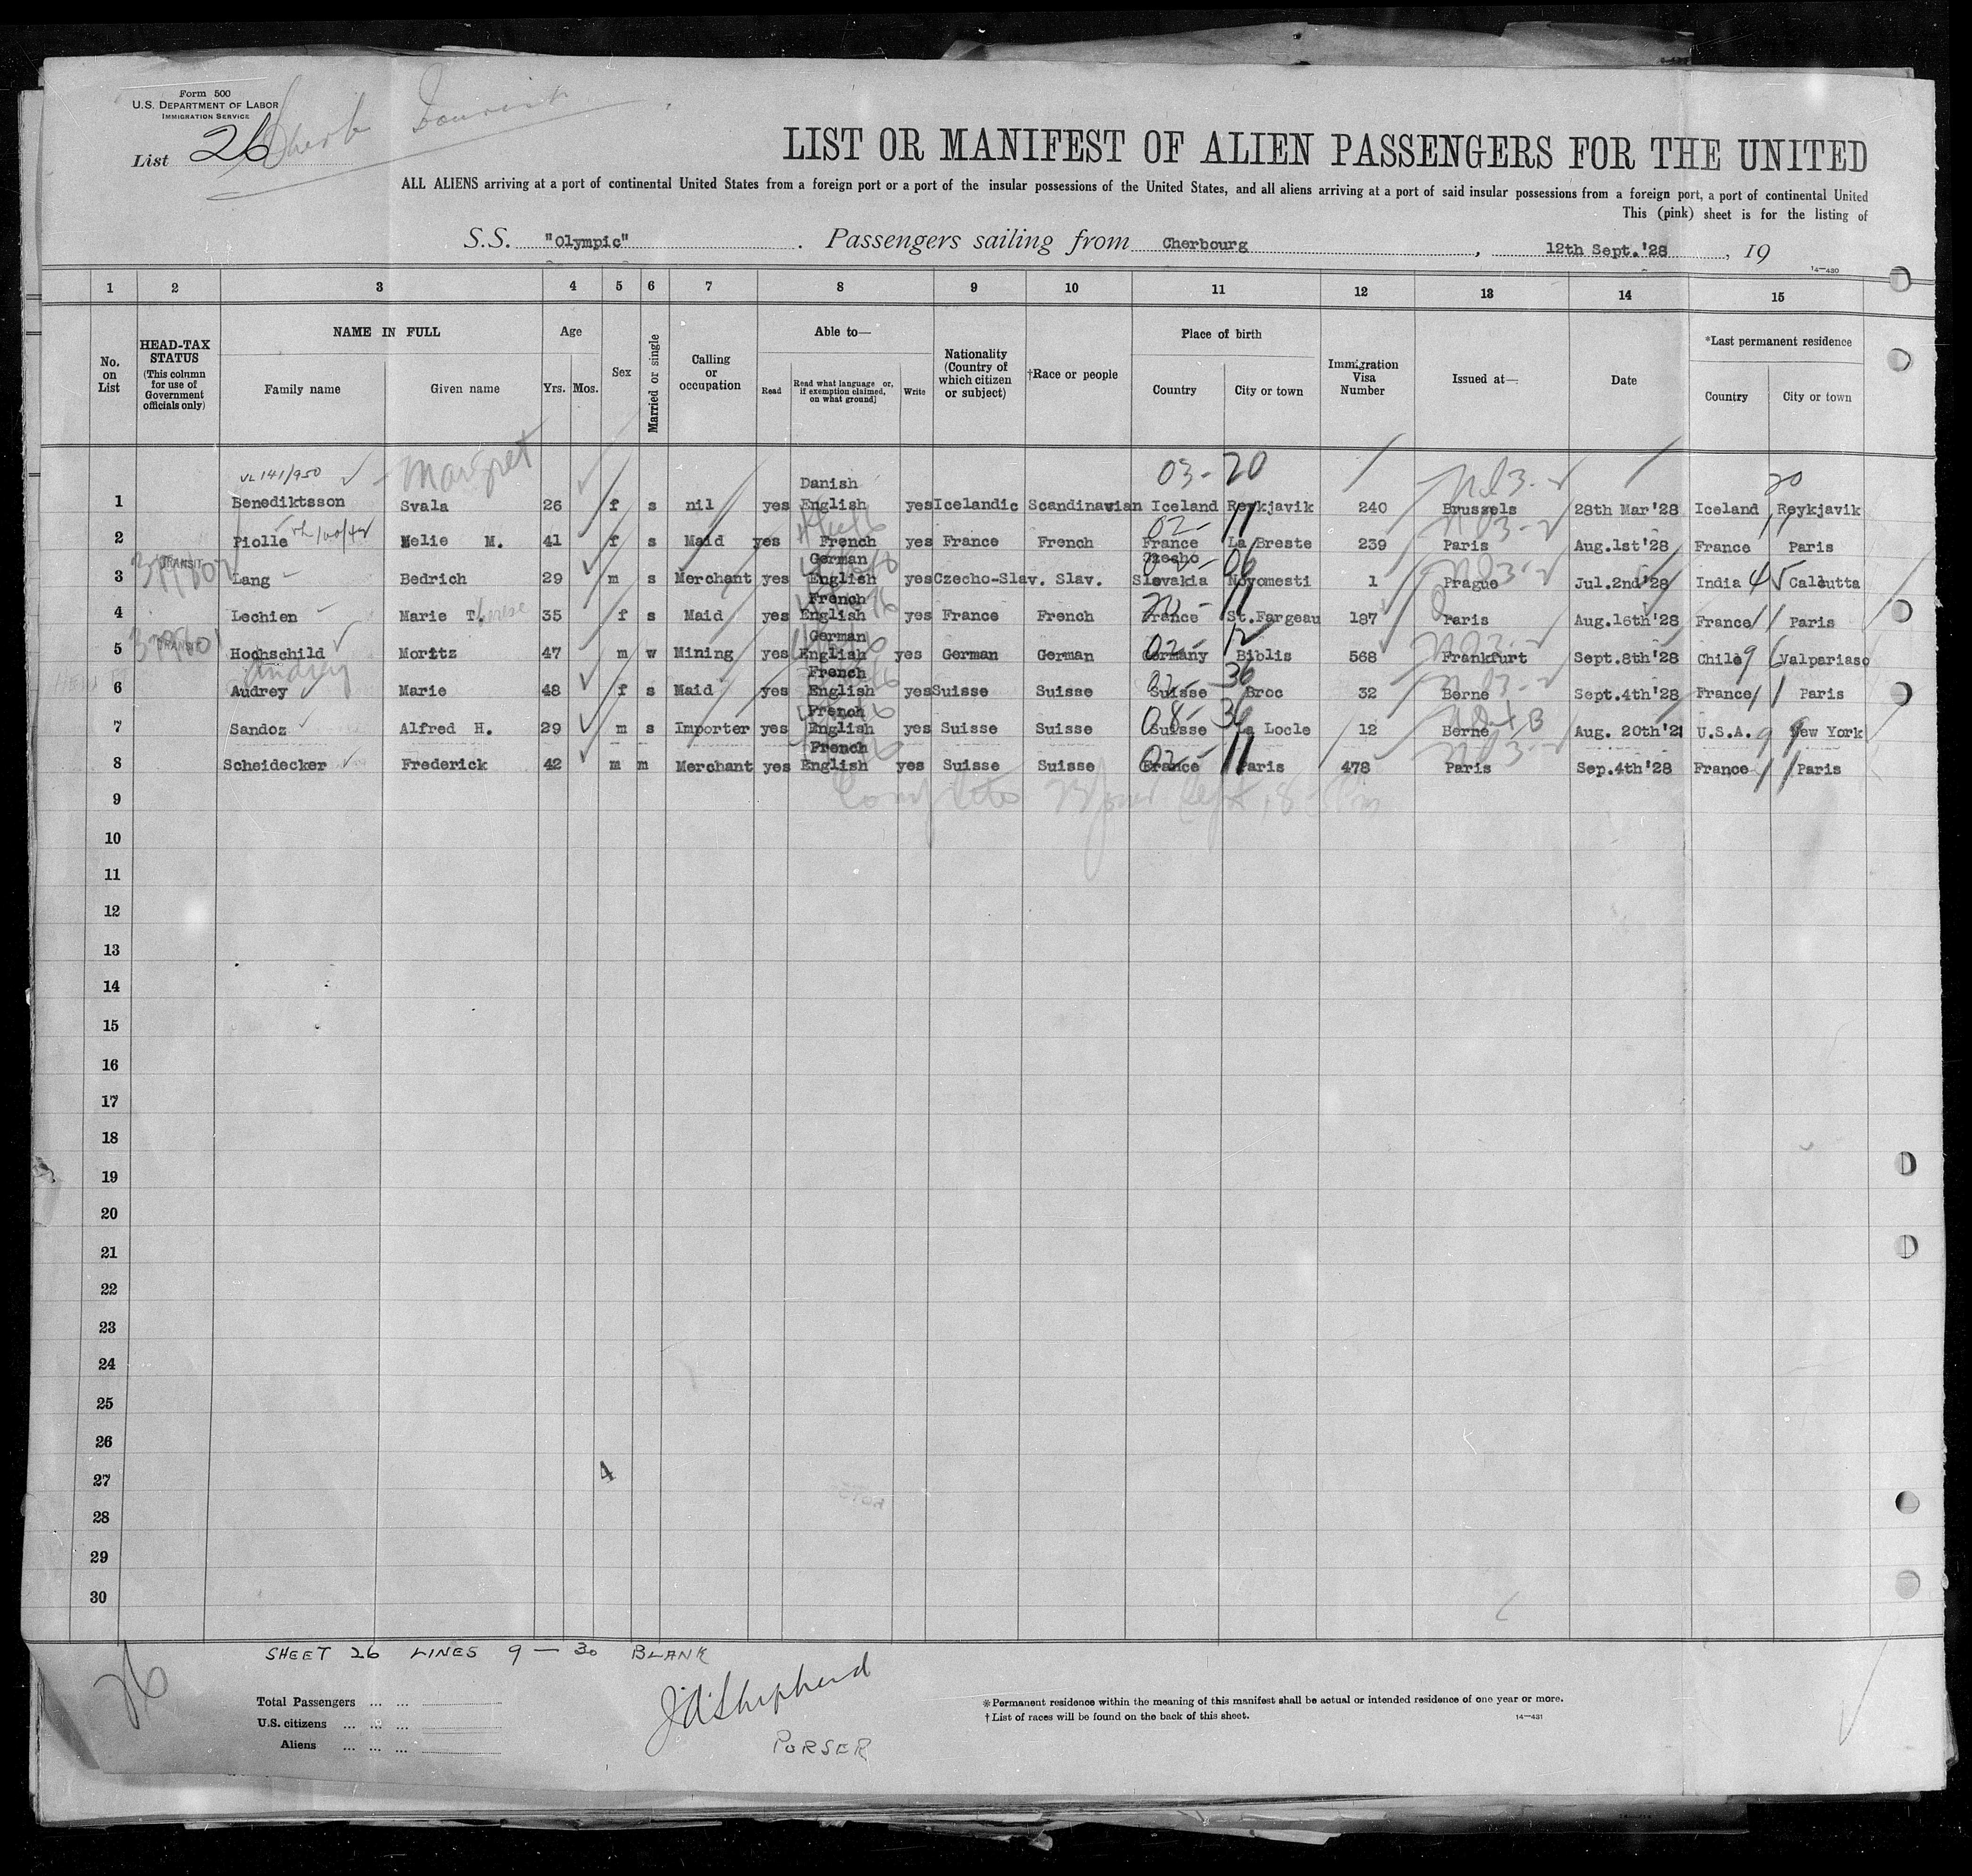 Form 500
U.S. DEPARTMENT OF LABOR
IMMIGRATION SERVICE
List 26
LIST OR MANIFEST OF ALIEN PASSENGERS FOR THE UNITED
ALL ALIENS arriving at a port of continental United States from a foreign port or a port of the insular possessions of the United States, and all aliens arriving at a port of said insular possessions from a foreign port, a port of continental United
This (pink) sheet is for the listing of
S.S. "Olympic" . Passengers sailing from Cherbourg , 12th Sept.'28 , 19
14—430
1 2 3 4 5 6 7 8 9 10 11 12 13 14 15
No. on List
HEAD-TAX STATUS (This column for use of Government officials only)
NAME IN FULL
Family name Given name
Age
Yrs. Mos.
Sex
Married or single
Calling or occupation
Able to—
Read Read what language or, if exemption claimed, on what ground] Write
Nationality (Country of which citizen or subject)
†Race or people
Place of birth
Country City or town
Immigration Visa Number
Issued at—
Date
*Last permanent residence
Country City or town
VL 141/950 Margret 03-20 20
Danish
1 Benediktsson Svala 26 f s nil yes English yes Icelandic Scandinavian Iceland Reykjavik 240 Brussels 28th Mar'28 Iceland Reykjavik
2 Piolle Melie M. 41 f s Maid yes French yes France French France La Breste 239 Paris Aug.1st'28 France Paris
TRANSIT German Czecho
3 Lang Bedrich 29 m s Merchant yes English yes Czecho-Slav. Slav. Slovakia Novomesti 1 Prague Jul.2nd'28 India Calcutta
French
4 Lechien Marie T. 35 f s Maid yes English yes France French France St.Fargeau 187 Paris Aug.16th'28 France Paris
TRANSIT German
5 Hochschild Moritz 47 m w Mining yes English yes German German Germany Biblis 568 Frankfurt Sept.8th'28 Chile Valpariaso
Audrey French
6 Audrey Marie 48 f s Maid yes English yes Suisse Suisse Suisse Broc 32 Berne Sept.4th'28 France Paris
French
7 Sandoz Alfred H. 29 m s Importer yes English yes Suisse Suisse Suisse La Locle 12 Berne Aug. 20th'2 U.S.A. New York
French
8 Scheidecker Frederick 42 m m Merchant yes English yes Suisse Suisse France Paris 478 Paris Sep.4th'28 France Paris
9
10
11
12
13
14
15
16
17
18
19
20
21
22
23
24
25
26
27
4
28
29
30
SHEET 26 LINES 9 — 30 BLANK
26
Total Passengers ... ...
U.S. citizens ... ... ...
Aliens ... ... ...
J.A. Shepherd
PURSER
*Permanent residence within the meaning of this manifest shall be actual or intended residence of one year or more.
†List of races will be found on the back of this sheet.
14—431